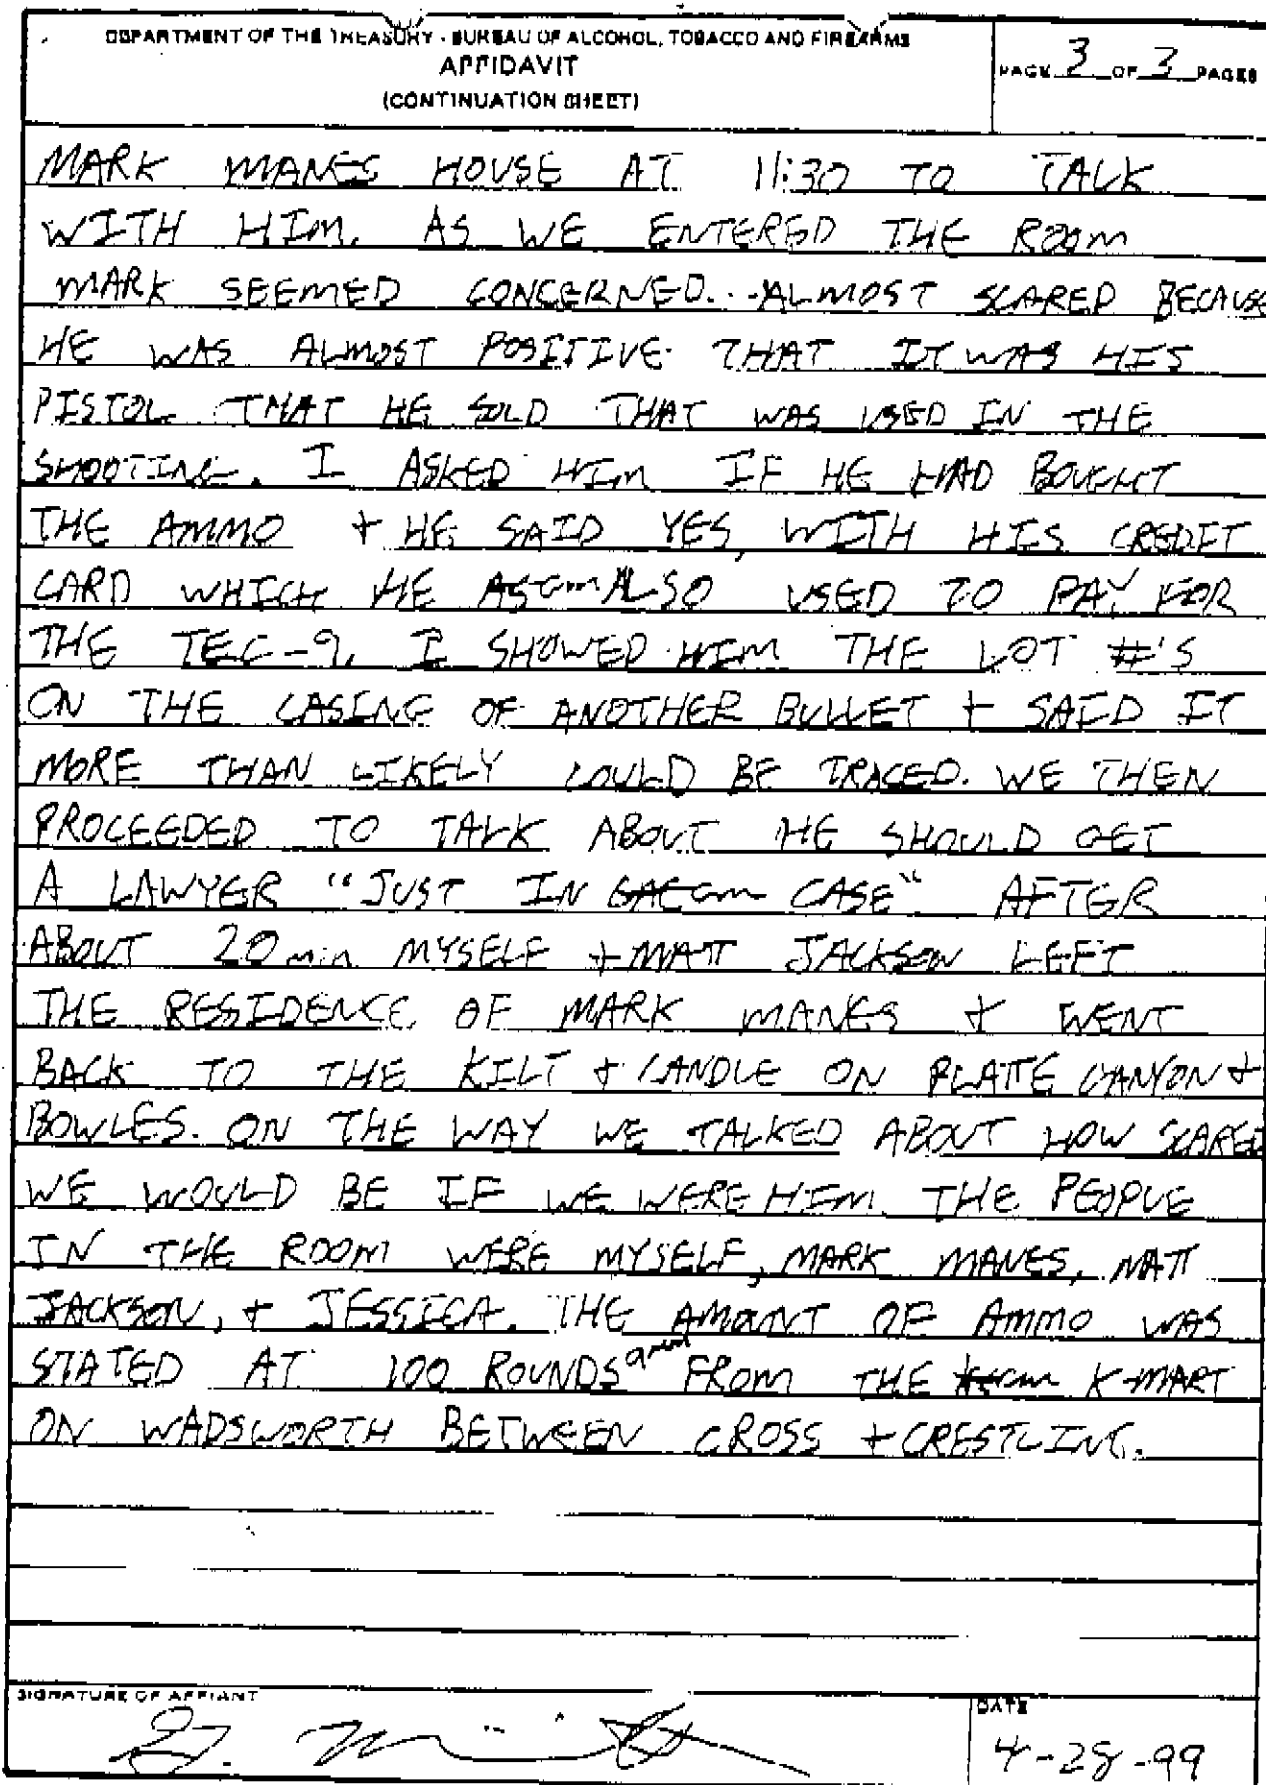 DEPARTMENT OF THE TREASURY - BUREAU OF ALCOHOL, TOBACCO AND FIREARMS
AFFIDAVIT
(CONTINUATION SHEET)
PAGE 3 OF 3 PAGES
MARK MANES HOUSE AT 11:30 TO TALK
WITH HIM. AS WE ENTERED THE ROOM
MARK SEEMED CONCERNED...ALMOST SCARED BECAUSE
HE WAS ALMOST POSITIVE THAT IT WAS HIS
PISTOL THAT HE SOLD THAT WAS USED IN THE
SHOOTING. I ASKED HIM IF HE HAD BOUGHT
THE AMMO + HE SAID YES, WITH HIS CREDIT
CARD WHICH HE ALSO USED TO PAY FOR
THE TEC-9. I SHOWED HIM THE LOT #'S
ON THE CASING OF ANOTHER BULLET + SAID IT
MORE THAN LIKELY COULD BE TRACED. WE THEN
PROCEEDED TO TALK ABOUT HE SHOULD GET
A LAWYER "JUST IN CASE" AFTER
ABOUT 20 min MYSELF + MATT JACKSON LEFT
THE RESIDENCE OF MARK MANES + WENT
BACK TO THE KILT + CANDLE ON PLATTE CANYON +
BOWLES. ON THE WAY WE TALKED ABOUT HOW SCARED
WE WOULD BE IF WE WERE HIM. THE PEOPLE
IN THE ROOM WERE MYSELF, MARK MANES, MATT
JACKSON, + JESSICA. THE AMOUNT OF AMMO WAS
STATED AT 100 ROUNDS FROM THE K-MART
ON WADSWORTH BETWEEN CROSS + CRESTLINE.
SIGNATURE OF AFFIANT
DATE
4-28-99